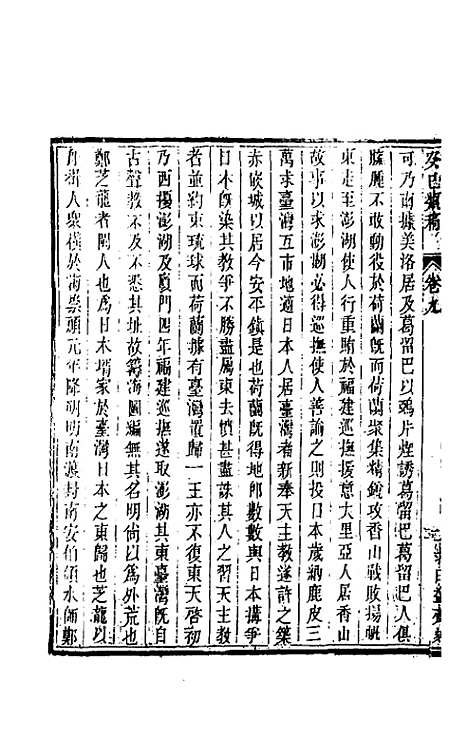 癸巳類稿
卷九
可乃南據美洛居及葛留巴以鴉片煙誘葛留巴葛留巴人俱
臃羸不敢校於荷蘭旣而荷蘭聚集精銳攻香山戰敗揚帆
東走澎湖行重賄於福建巡撫撫意大里亞人居香山
故事以求澎湖必得巡撫使人善諭之則投日本歲納鹿皮三
萬求臺灣互市地適日本人居臺灣者新奉天主敎遂許之築
赤嵌城以居今安平鎮是也荷蘭旣得地卽數數與日本搆爭
日本旣染其敎爭不勝盡屬東去憤甚盡誅其人之習天主敎
者並約束琉球而荷蘭據有臺灣置歸一王亦不復東天啓初
乃西擾澎湖及厦門四年福建巡撫遂取澎湖其東臺灣旣自
古聲敎不及不悉其址故籌海圖編無其名明尙以爲外荒也
鄭芝龍者閩人也爲日本壻家於臺灣日本之東歸也芝龍以
舟楫人衆橫於海崇禎元年降明明南渡封南安伯領水師鄭